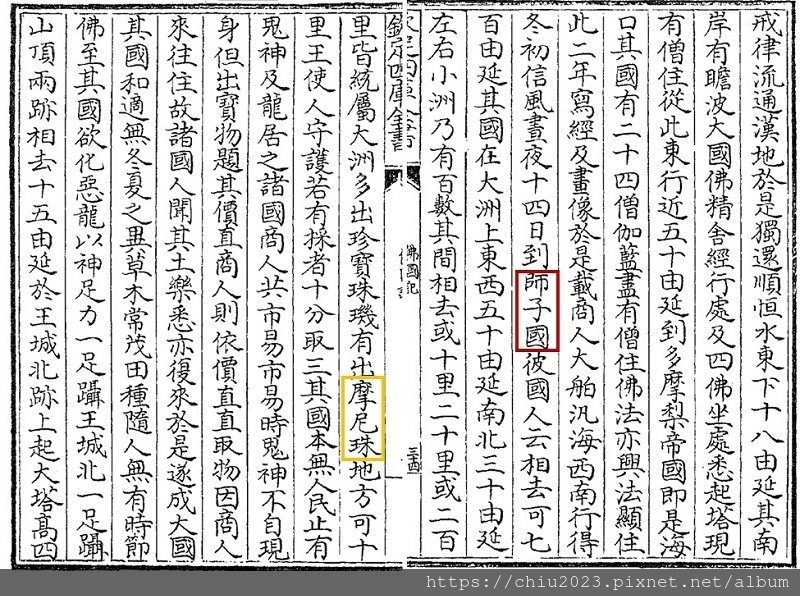 戒律流通漢地於是獨還順恒水東下十八由延其南
岸有瞻波大國佛精舍經行處及四佛坐處悉起塔現
有僧住從此東行近五十由延到多摩梨帝國即是海
口其國有二十四僧伽藍盡有僧住佛法亦興法顯住
此二年寫經及畫像於是載商人大舶汎海西南行得
冬初信風晝夜十四日到師子國彼國人云相去可七
百由延其國在大洲上東西五十由延南北三十由延
左右小洲乃有百數其間相去或十里二十里或二百
欽定四庫全書
佛國記
里皆統屬大洲多出珍寶珠璣有出摩尼珠地方可十
里王使人守護若有採者十分取三其國本無人民止有
鬼神及龍居之諸國商人共市易市易時鬼神不自現
身但出寶物題其價直商人則依價直直取物因商人
來往住故諸國人聞其土樂悉亦復來於是遂成大國
其國和適無冬夏之異草木常茂田種隨人無有時節
佛至其國欲化惡龍以神足力一足躡王城北一足躡
山頂兩跡相去十五由延於王城北跡上起大塔高四
https://chiu2023.pixnet.net/album